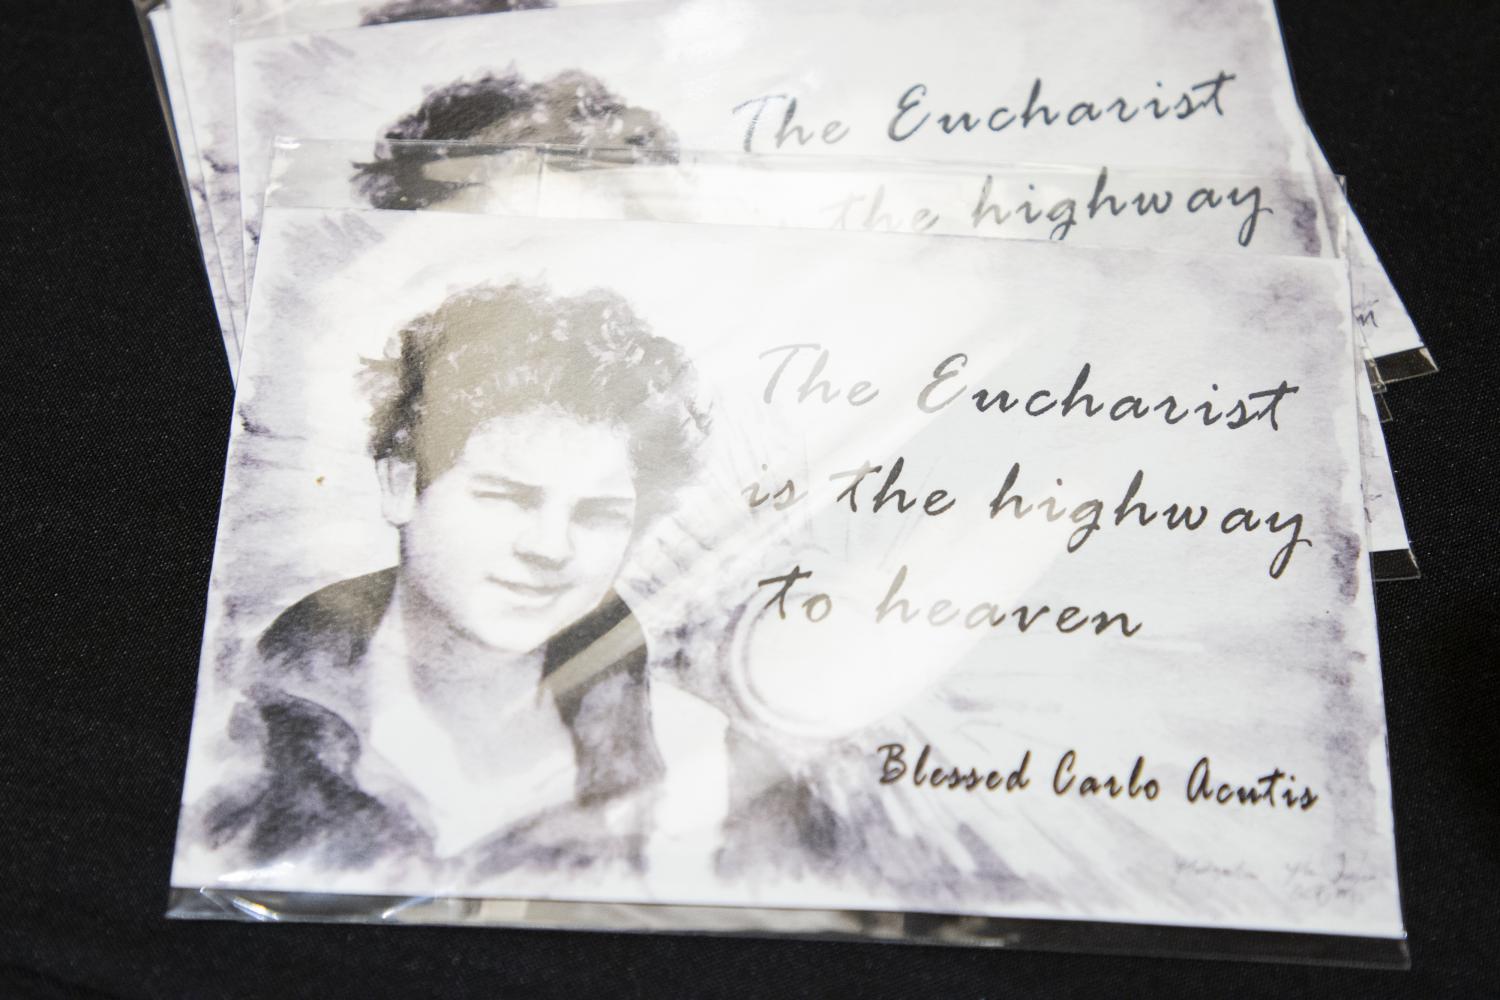 The Eucharist
the highway
The Eucharist
is the highway
to heaven
Blessed Carlo Acutis